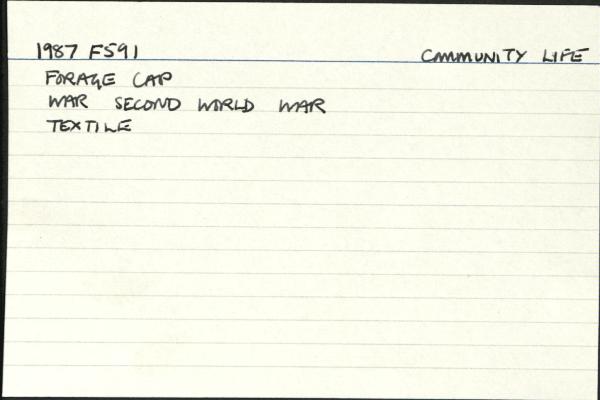 1987 F591 COMMUNITY LIFE
FORAGE CAP
WAR SECOND WORLD WAR
TEXTILE